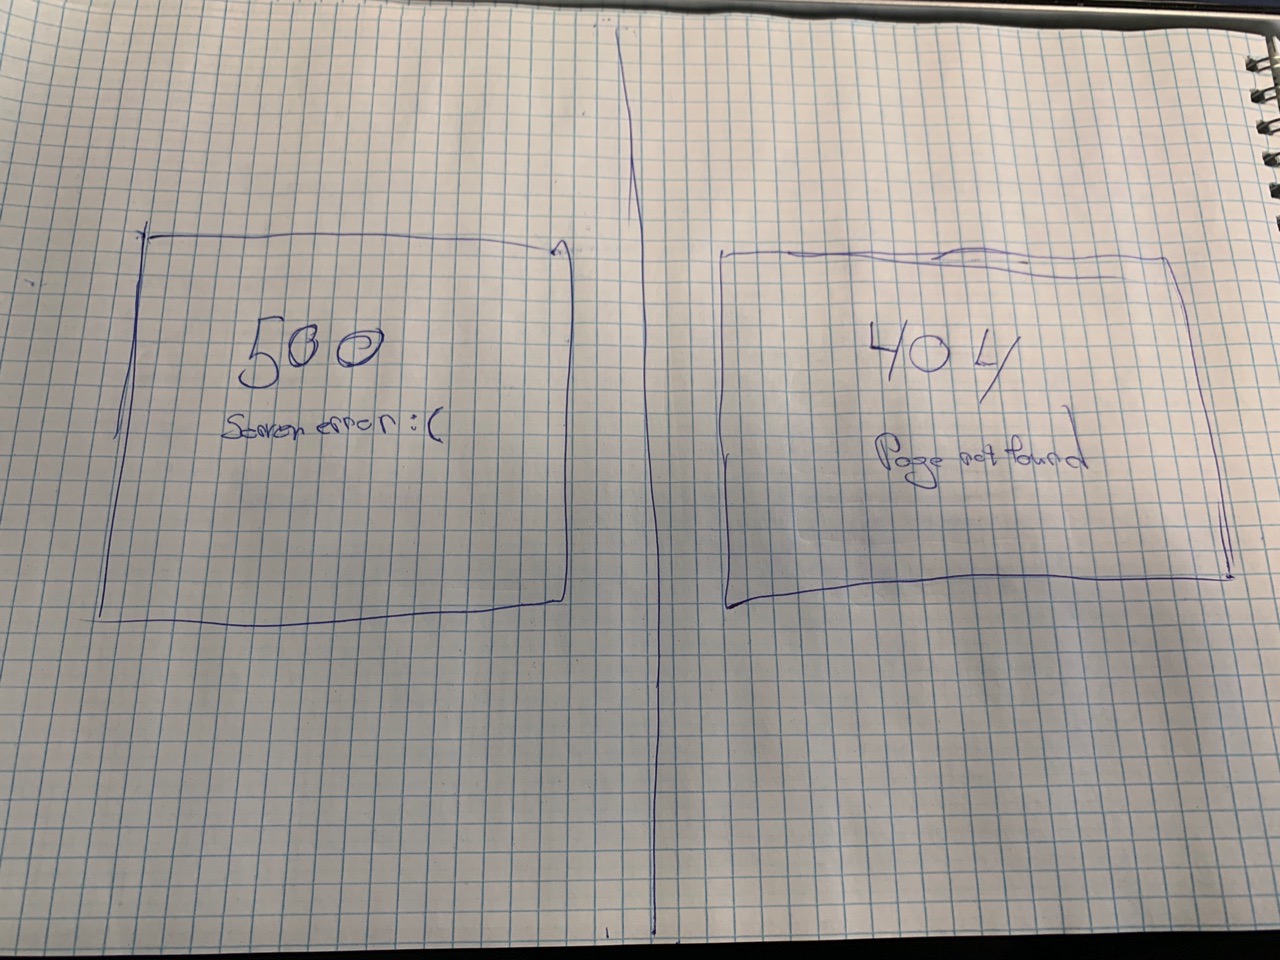 500
Server error :(
404
Page not found